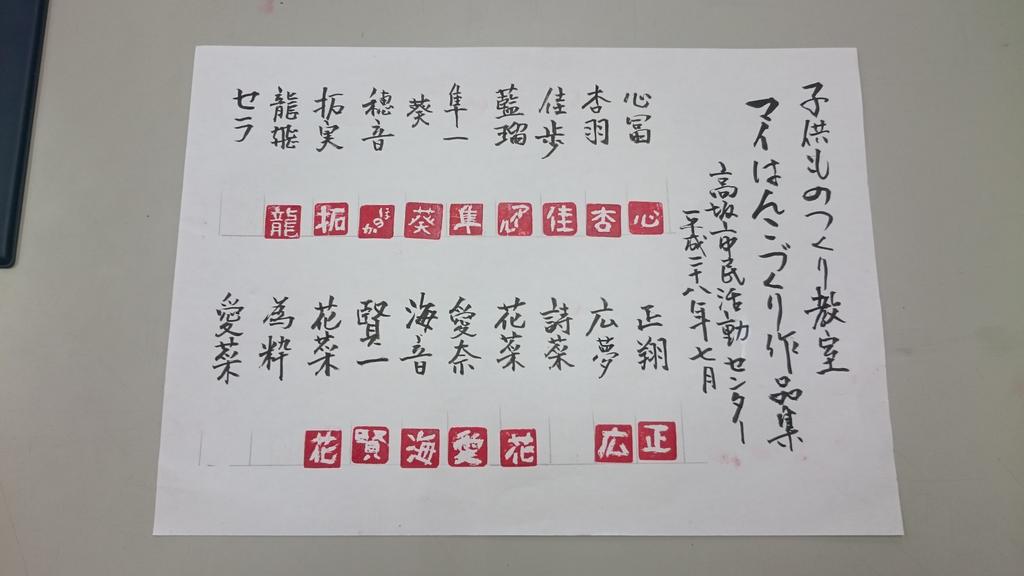 子供ものつくり教室
マイはんこづくり作品集
高坂市民活動センター
平成二十八年七月
心冨
杏羽
佳歩
藍瑠
隼一
葵
穂音
拓実
龍姫
セラ
心
杏
佳
アイル
隼
葵
ほのか
拓
龍
正翔
広夢
詩菜
花菜
愛奈
海音
賢一
花菜
為粋
愛菜
正
広
花
愛
海
賢
花